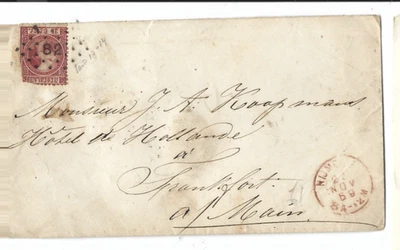 82
Monsieur J. A. Koopmans.
Hôtel de Hollande
à
Frankfort.
a/Main.
NOV
69